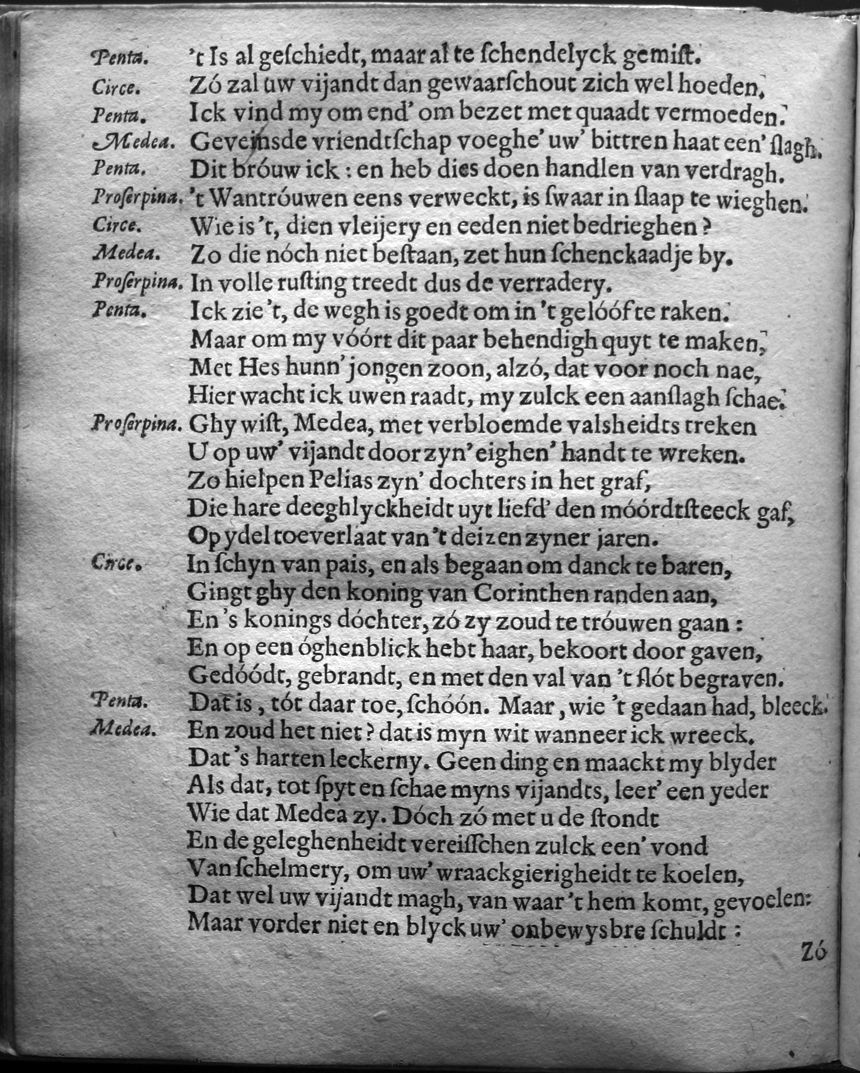 Penta. 't Is al geſchiedt, maar al te ſchendelyck gemiſt.
Circe. Zó zal uw vijandt dan gewaarſchout zich wel hoeden.
Penta. Ick vind my om end' om bezet met quaadt vermoeden.
Medea. Geveinsde vriendtſchap voeghe' uw' bittren haat een' ſlagh.
Penta. Dit bróuw ick: en heb dies doen handlen van verdragh.
Proſerpina. 't Wantróuwen eens verweckt, is ſwaar in ſlaap te wieghen.
Circe. Wie is 't, dien vleijery en eeden niet bedrieghen?
Medea. Zo die nóch niet beſtaan, zet hun ſchenckaadje by.
Proſerpina. In volle ruſting treedt dus de verradery.
Penta. Ick zie 't, de wegh is goedt om in 't gelóófte raken.
Maar om my vóórt dit paar behendigh quyt te maken,
Met Hes hunn' jongen zoon, alzó, dat voor noch nae,
Hier wacht ick uwen raadt, my zulck een aanſlagh ſchae.
Proſerpina. Ghy wiſt, Medea, met verbloemde valsheidts treken
U op uw' vijandt door zyn' eighen' handt te wreken.
Zo hielpen Pelias zyn' dochters in het graf,
Die hare deeghlyckheidt uyt liefd' den móórdtſteeck gaf,
Op ydel toeverlaat van 't deizen zyner jaren.
Circe. In ſchyn van pais, en als begaan om danck te baren,
Gingt ghy den koning van Corinthen randen aan,
En 's konings dóchter, zó zy zoud te tróuwen gaan:
En op een óghenblick hebt haar, bekoort door gaven,
Gedóódt, gebrandt, en met den val van 't ſlót begraven.
Penta. Dat is, tót daar toe, ſchóón. Maar, wie 't gedaan had, bleeck.
Medea. En zoud het niet? dat is myn wit wanneer ick wreeck.
Dat 's harten leckerny. Geen ding en maackt my blyder
Als dat, tot ſpyt en ſchae myns vijandts, leer' een yeder
Wie dat Medea zy. Dóch zó met u de ſtondt
En de geleghenheidt vereiſſchen zulck een' vond
Van ſchelmery, om uw' wraackgierigheidt te koelen,
Dat wel uw vijandt magh, van waar 't hem komt, gevoelen:
Maar vorder niet en blyck uw' onbewysbre ſchuldt:
Zó